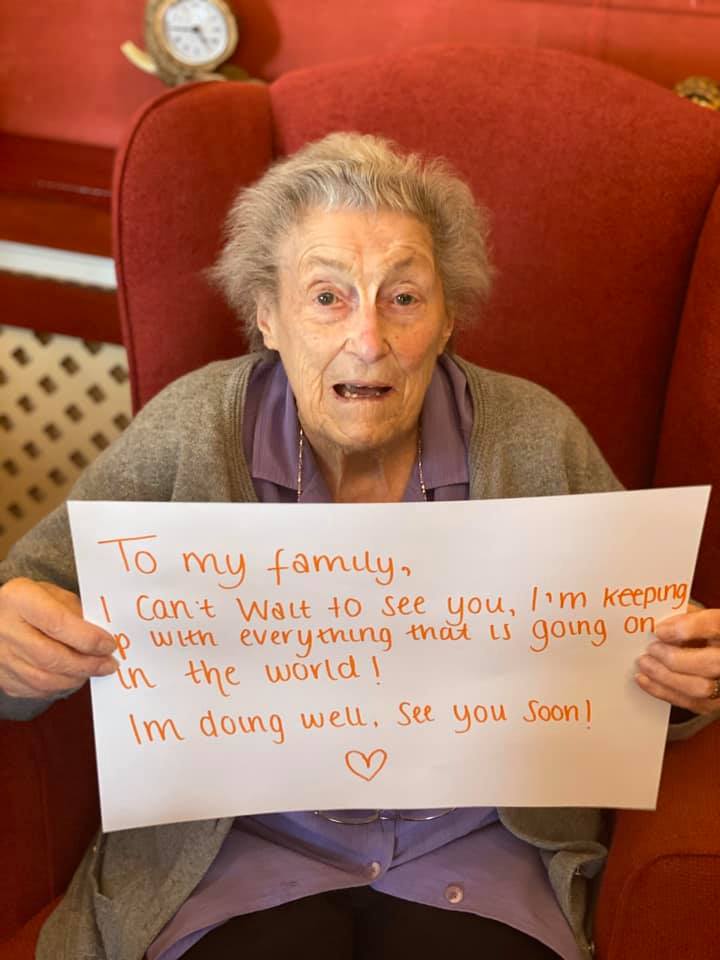 To my family,
I can't wait to see you, I'm keeping
up with everything that is going on
in the world!
Im doing well. See you soon!